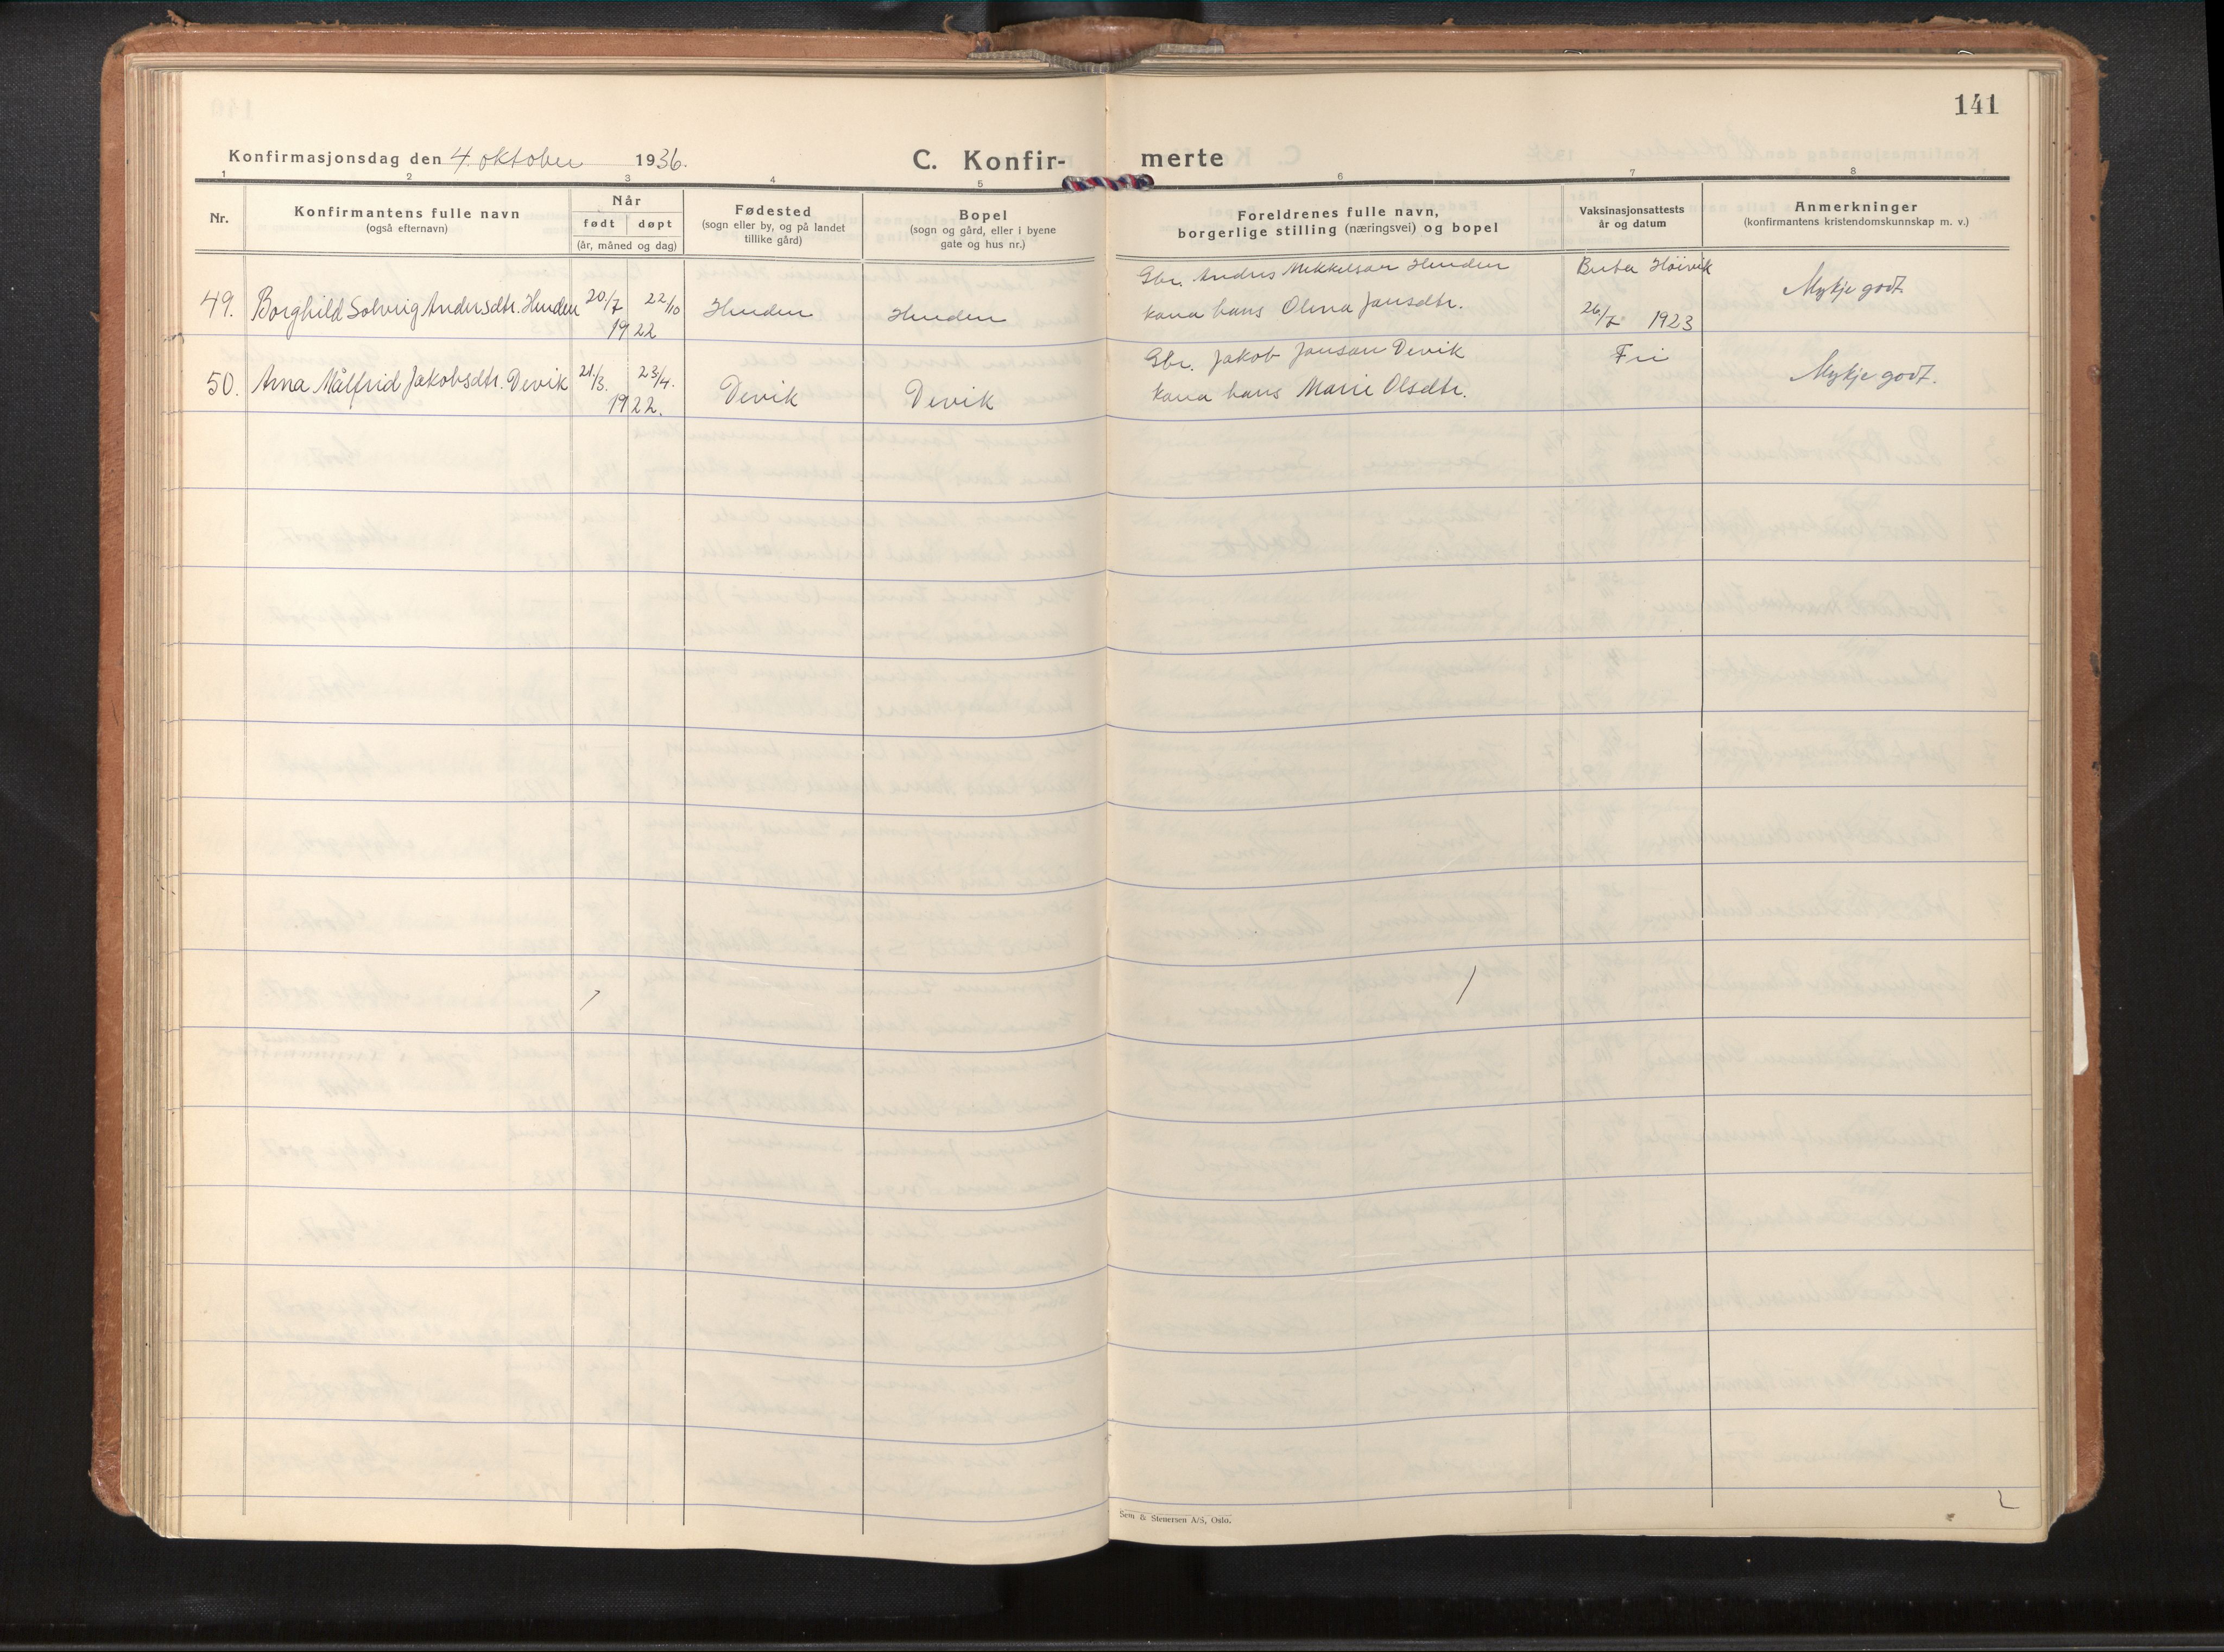 141
Konfirmasjonsdag den 4. oktober 1936.
C. Konfir- merte
1 2 3 4 5 6 7 8
Nr.
Konfirmantens fulle navn
(også efternavn)
Når
født døpt
(år, måned og dag)
Fødested
(sogn eller by, og på landet
tillike gård)
Bopel
(sogn og gård, eller i byene
gate og hus nr.)
Foreldrenes fulle navn,
borgerlige stilling (næringsvei) og bopel
Vaksinasjonsattests
år og datum
Anmerkninger
(konfirmantens kristendomskunnskap m. v.)
49. Borghild Solveig Andersdtr. Henden 20/7 22/10 Henden Henden
1922
Gbr. Anders Mikkelsen Henden
kona hans Olina Jansdtr.
Høivik
26/7 1923
Mykje godt
50. Anna Målfrid Jakobsdtr. Devik 21/3. 23/4. Devik Devik
1922.
Gbr. Jakob Jansan Devik
kona hans Marie Olsdtr.
Fri
Mykje godt.
Sem & Stenersen A/S, Oslo.